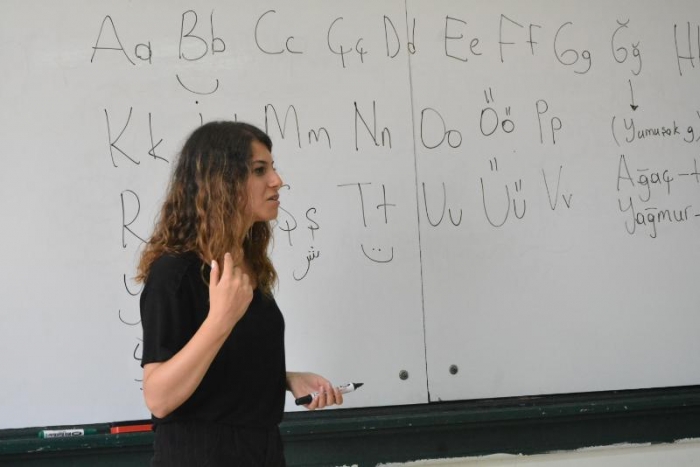 Aa Bb Cc Çç Dd Ee Ff Gg Ğğ H
ب
Kk Mm Nn Oo Öö Pp (Yumuşak g)
R Şş Tt Uu Üü Vv Ağaç -
Yağmur -
ش ت